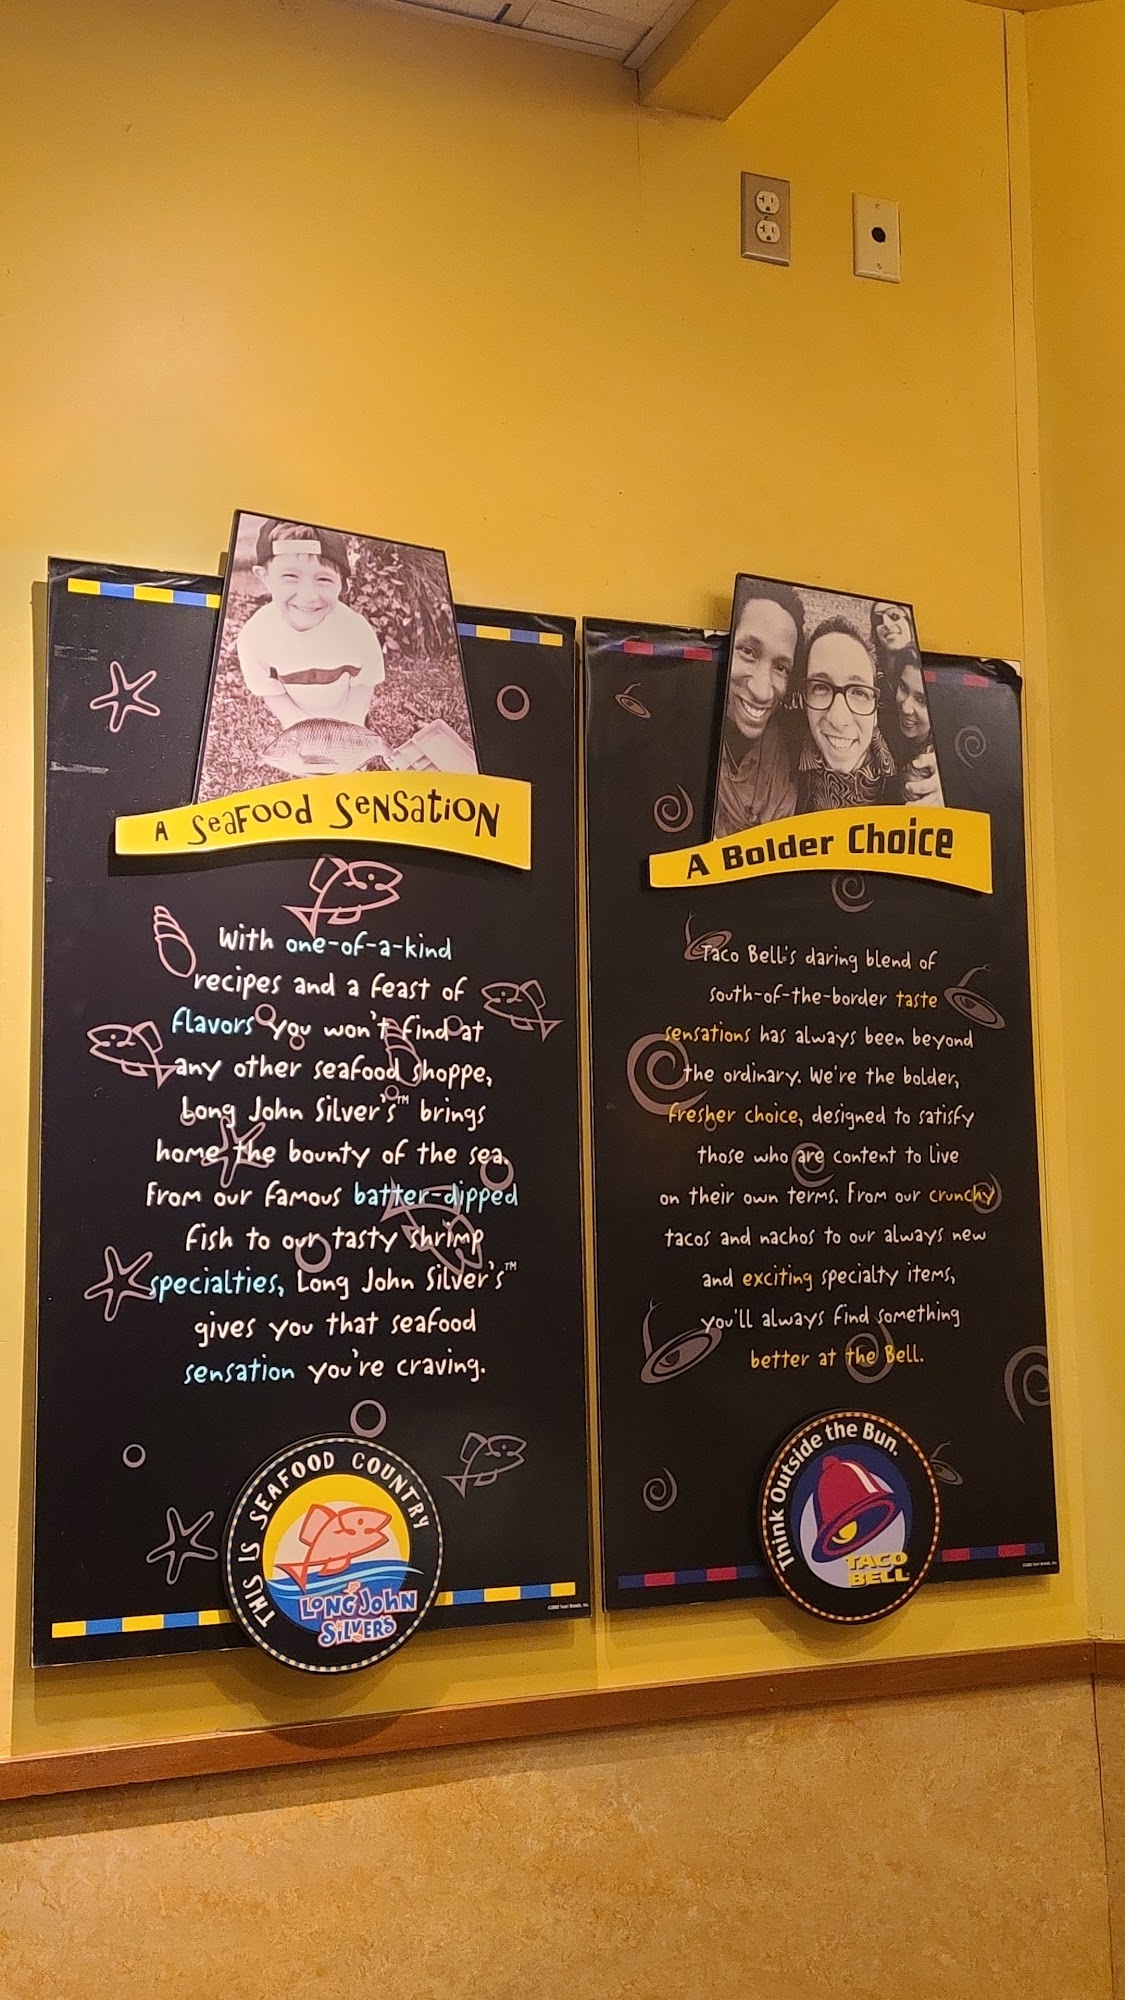 A SeaFood Sensation
With one-of-a-kind
recipes and a feast of
flavors you won't find at
any other seafood shoppe,
Long John Silver's™ brings
home the bounty of the sea.
From our famous batter-dipped
fish to our tasty shrimp
specialties, Long John Silver's™
gives you that seafood
sensation you're craving.
THIS IS SEAFOOD COUNTRY
LONG JOHN
SILVER'S
A Bolder Choice
Taco Bell's daring blend of
south-of-the-border taste
sensations has always been beyond
the ordinary. We're the bolder,
fresher choice, designed to satisfy
those who are content to live
on their own terms. From our crunchy
tacos and nachos to our always new
and exciting specialty items,
you'll always find something
better at the Bell.
Think Outside the Bun.
TACO
BELL